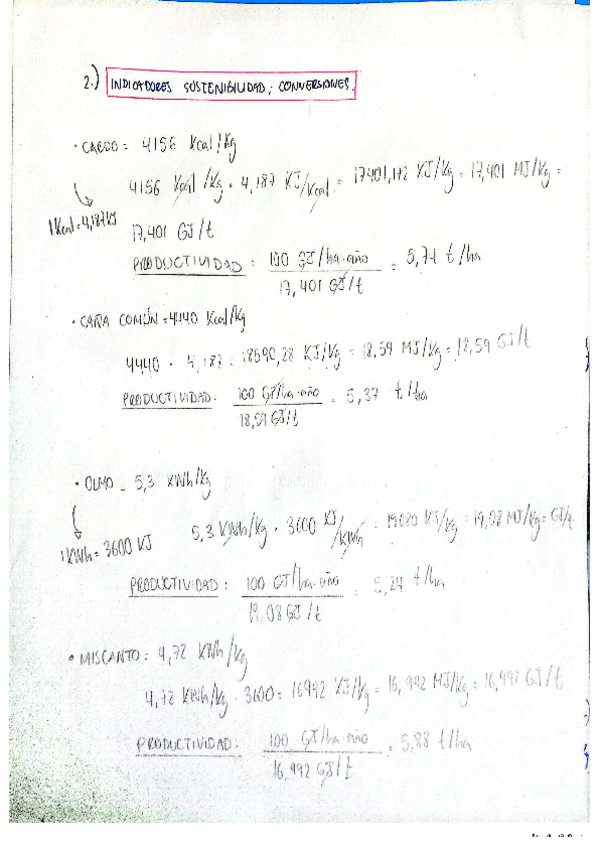 2.) INDICADORES SOSTENIBILIDAD; CONVERSIONES.
· CARDO = 4156 Kcal/Kg
4156 Kcal/Kg · 4,187 KJ/Kcal = 17401,172 KJ/Kg = 17,401 MJ/Kg =
1 Kcal = 4,187 KJ
17,401 GJ/t
PRODUCTIVIDAD : 100 GJ/ha·año = 5,74 t/ha
17,401 GJ/t
· CAÑA COMÚN = 4440 Kcal/Kg
4440 · 4,187 = 18590,28 KJ/Kg = 18,59 MJ/Kg = 18,59 GJ/t
PRODUCTIVIDAD: 100 GJ/ha·año = 5,37 t/ha
18,59 GJ/t
· OLMO = 5,3 KWh/Kg
5,3 KWh/Kg · 3600 KJ/KWh = 19080 KJ/Kg = 19,08 MJ/Kg = GJ/t
1 KWh = 3600 KJ
PRODUCTIVIDAD : 100 GJ/ha·año = 5,24 t/ha
19,08 GJ/t
· MISCANTO: 4,72 KWh/Kg
4,72 KWh/Kg · 3600 = 16992 KJ/Kg = 16,992 MJ/Kg = 16,992 GJ/t
PRODUCTIVIDAD: 100 GJ/ha·año = 5,88 t/ha
16,992 GJ/t